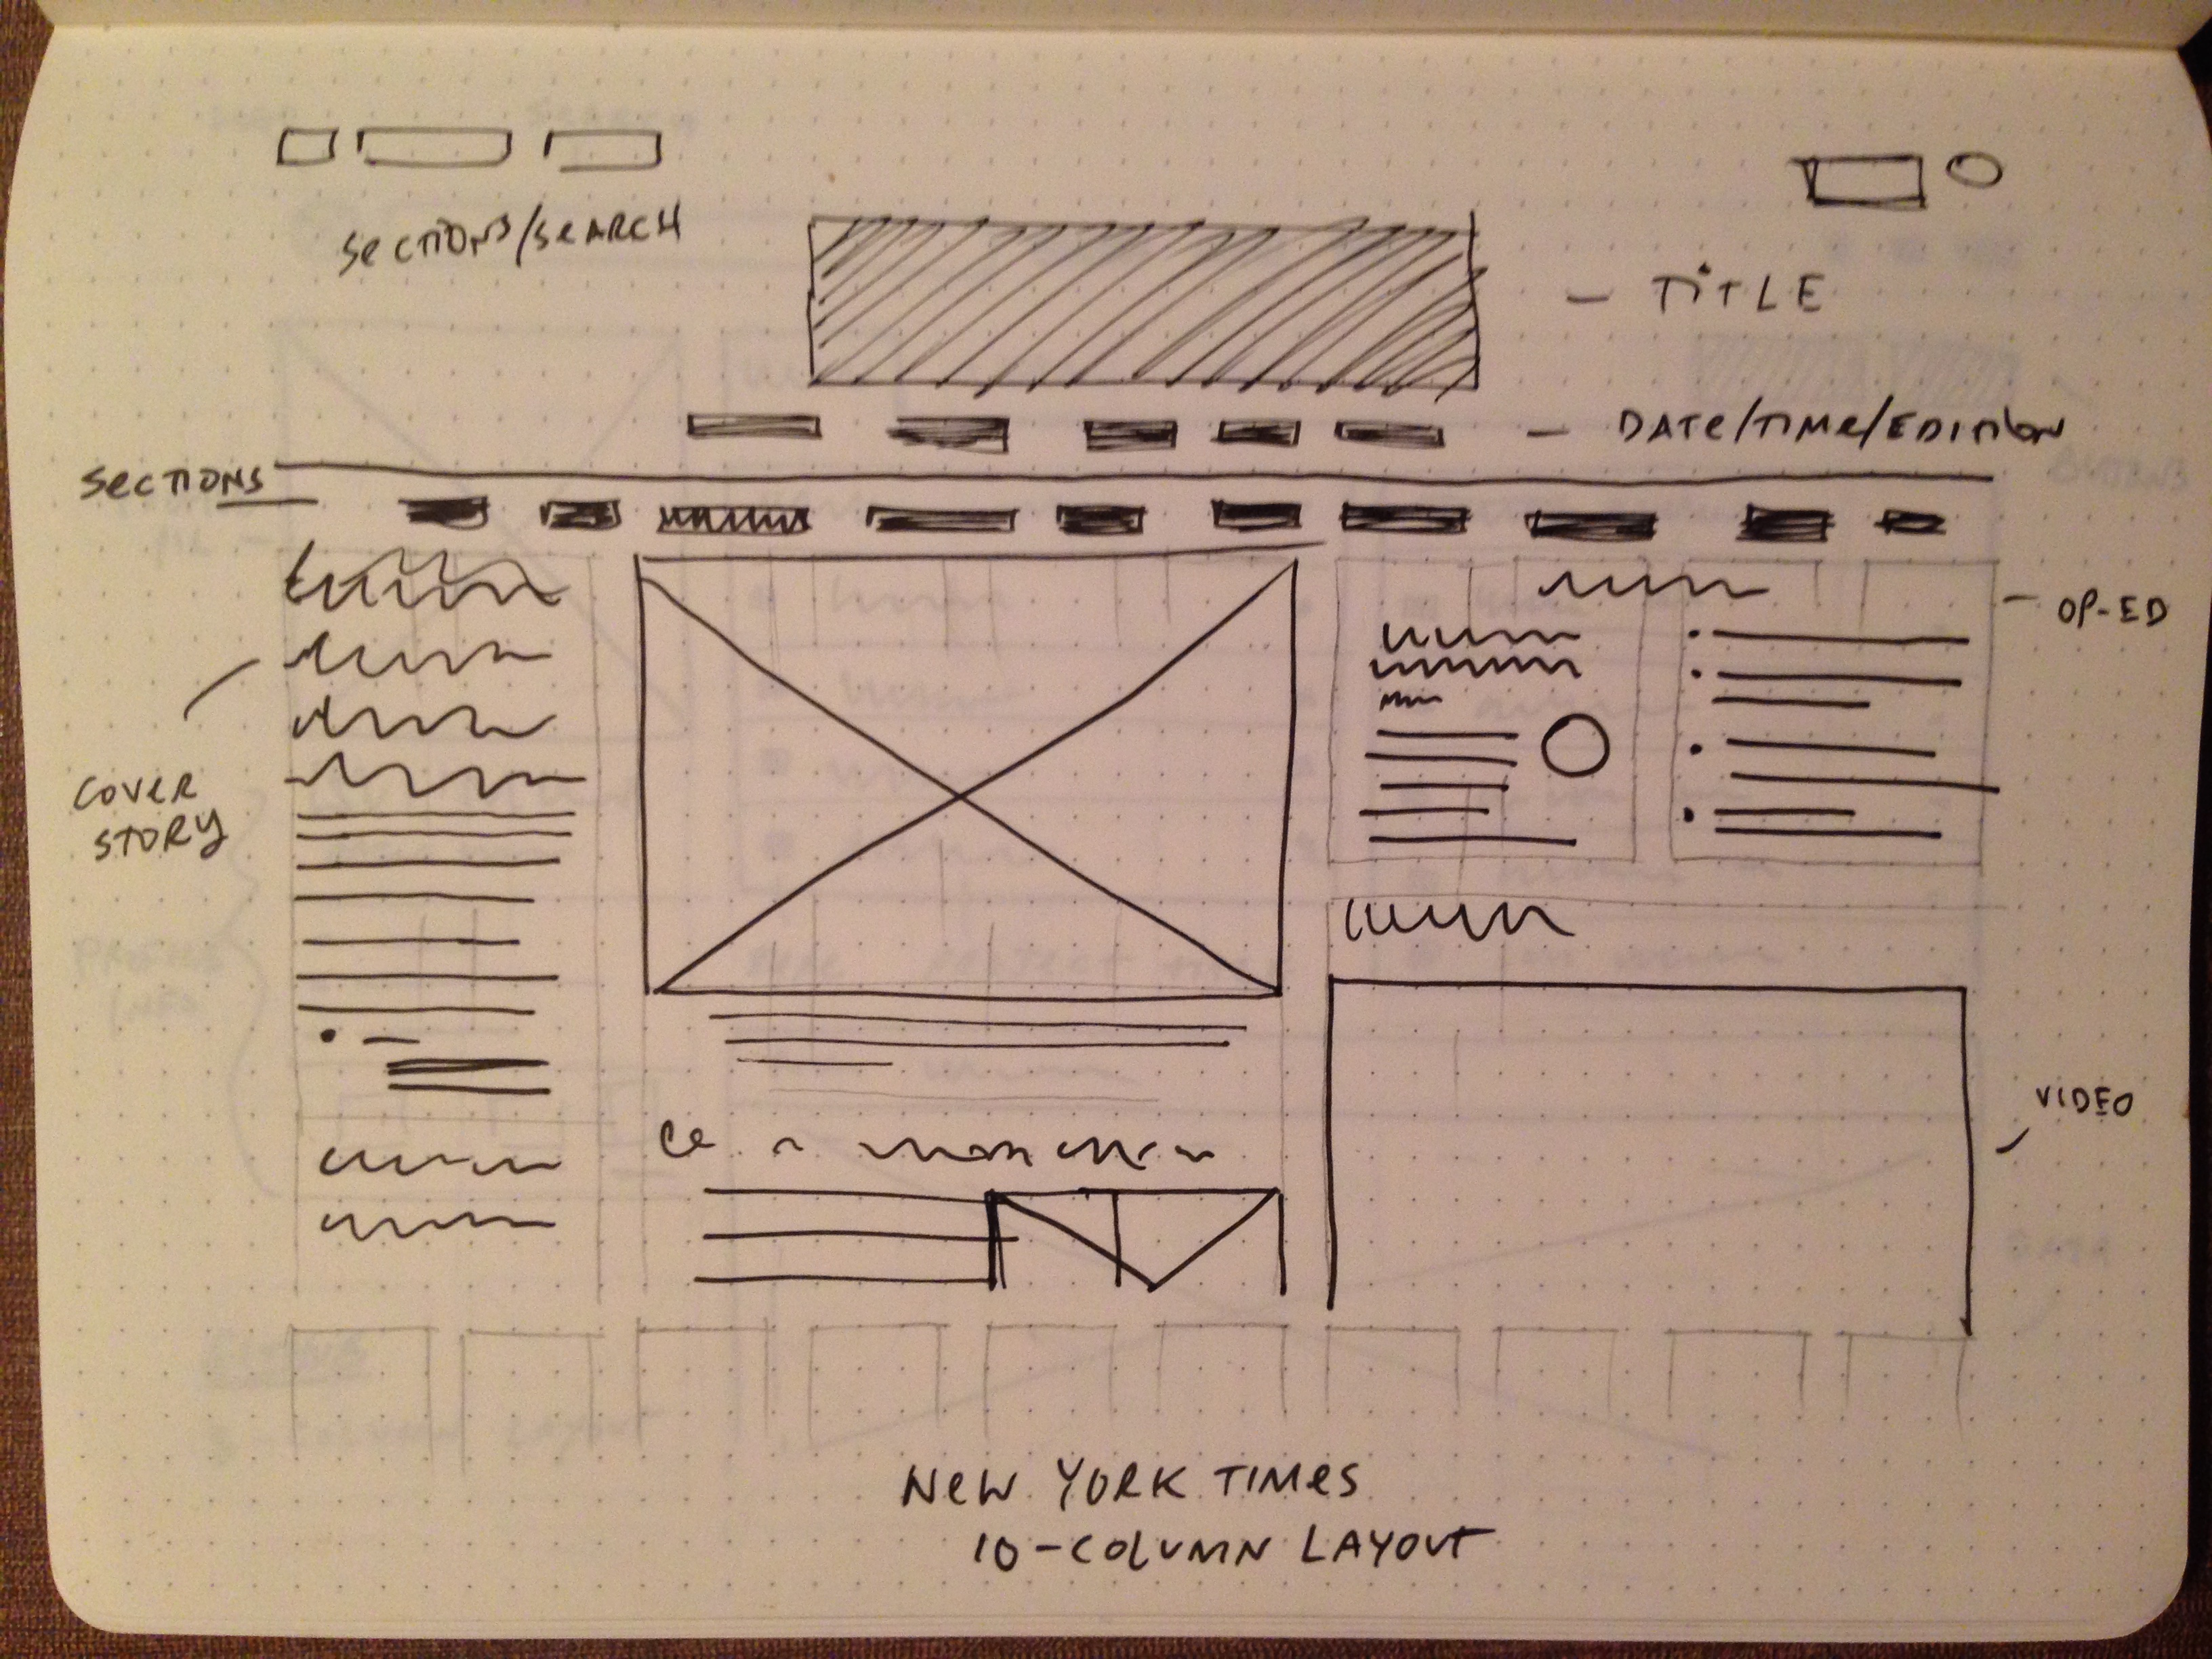 SECTIONS/SEARCH
- TITLE
- DATE/TIME/EDITION
SECTIONS
- OP-ED
COVER
STORY
VIDEO
NEW YORK TIMES
10-COLUMN LAYOUT